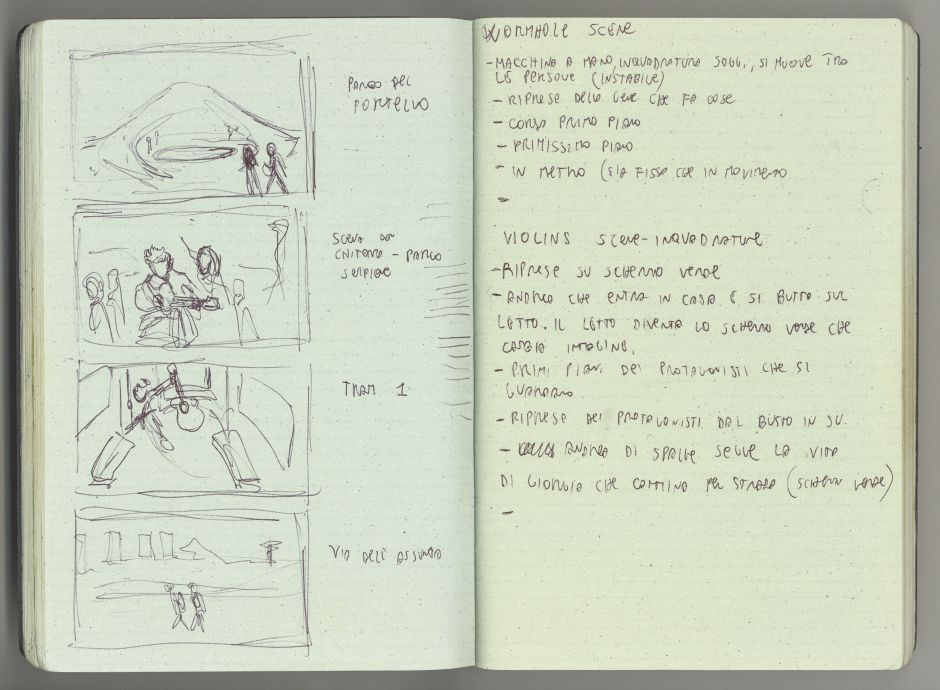 PARCO DEL
PORTELLO
SCENA CON
CHITARRA - PARCO
SEMPIONE
TRAM 1
VIA DELL'ASSUNTA
WORMHOLE SCENE
- MACCHINA A MANO, INQUADRATURA SOGG., SI MUOVE TRA
LE PERSONE (INSTABILE)
- RIPRESE DELLA GENTE CHE FA COSE
- CORSA PRIMO PIANO
- PRIMISSIMO PIANO
- IN METRÒ (SIA FISSA CHE IN MOVIMENTO
-
VIOLINS SCENE - INQUADRATURE
- RIPRESE SU SCHERMO VERDE
- ANDREA CHE ENTRA IN CASA E SI BUTTA SUL
LETTO. IL LETTO DIVENTA LO SCHERMO VERDE CHE
CAMBIA IMMAGINE.
- PRIMI PIANI DEI PROTAGONISTI CHE SI
GUARDANO
- RIPRESE DEI PROTAGONISTI DAL BUSTO IN SU.
- ANDREA DI SPALLE SEGUE LA VITA
DI GIORGIA CHE CAMMINA PER STRADA (SCHERMO VERDE)
-